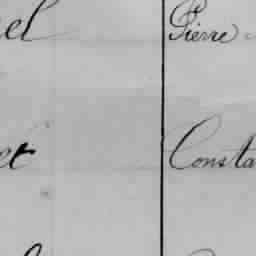 el Pierre
et Consta